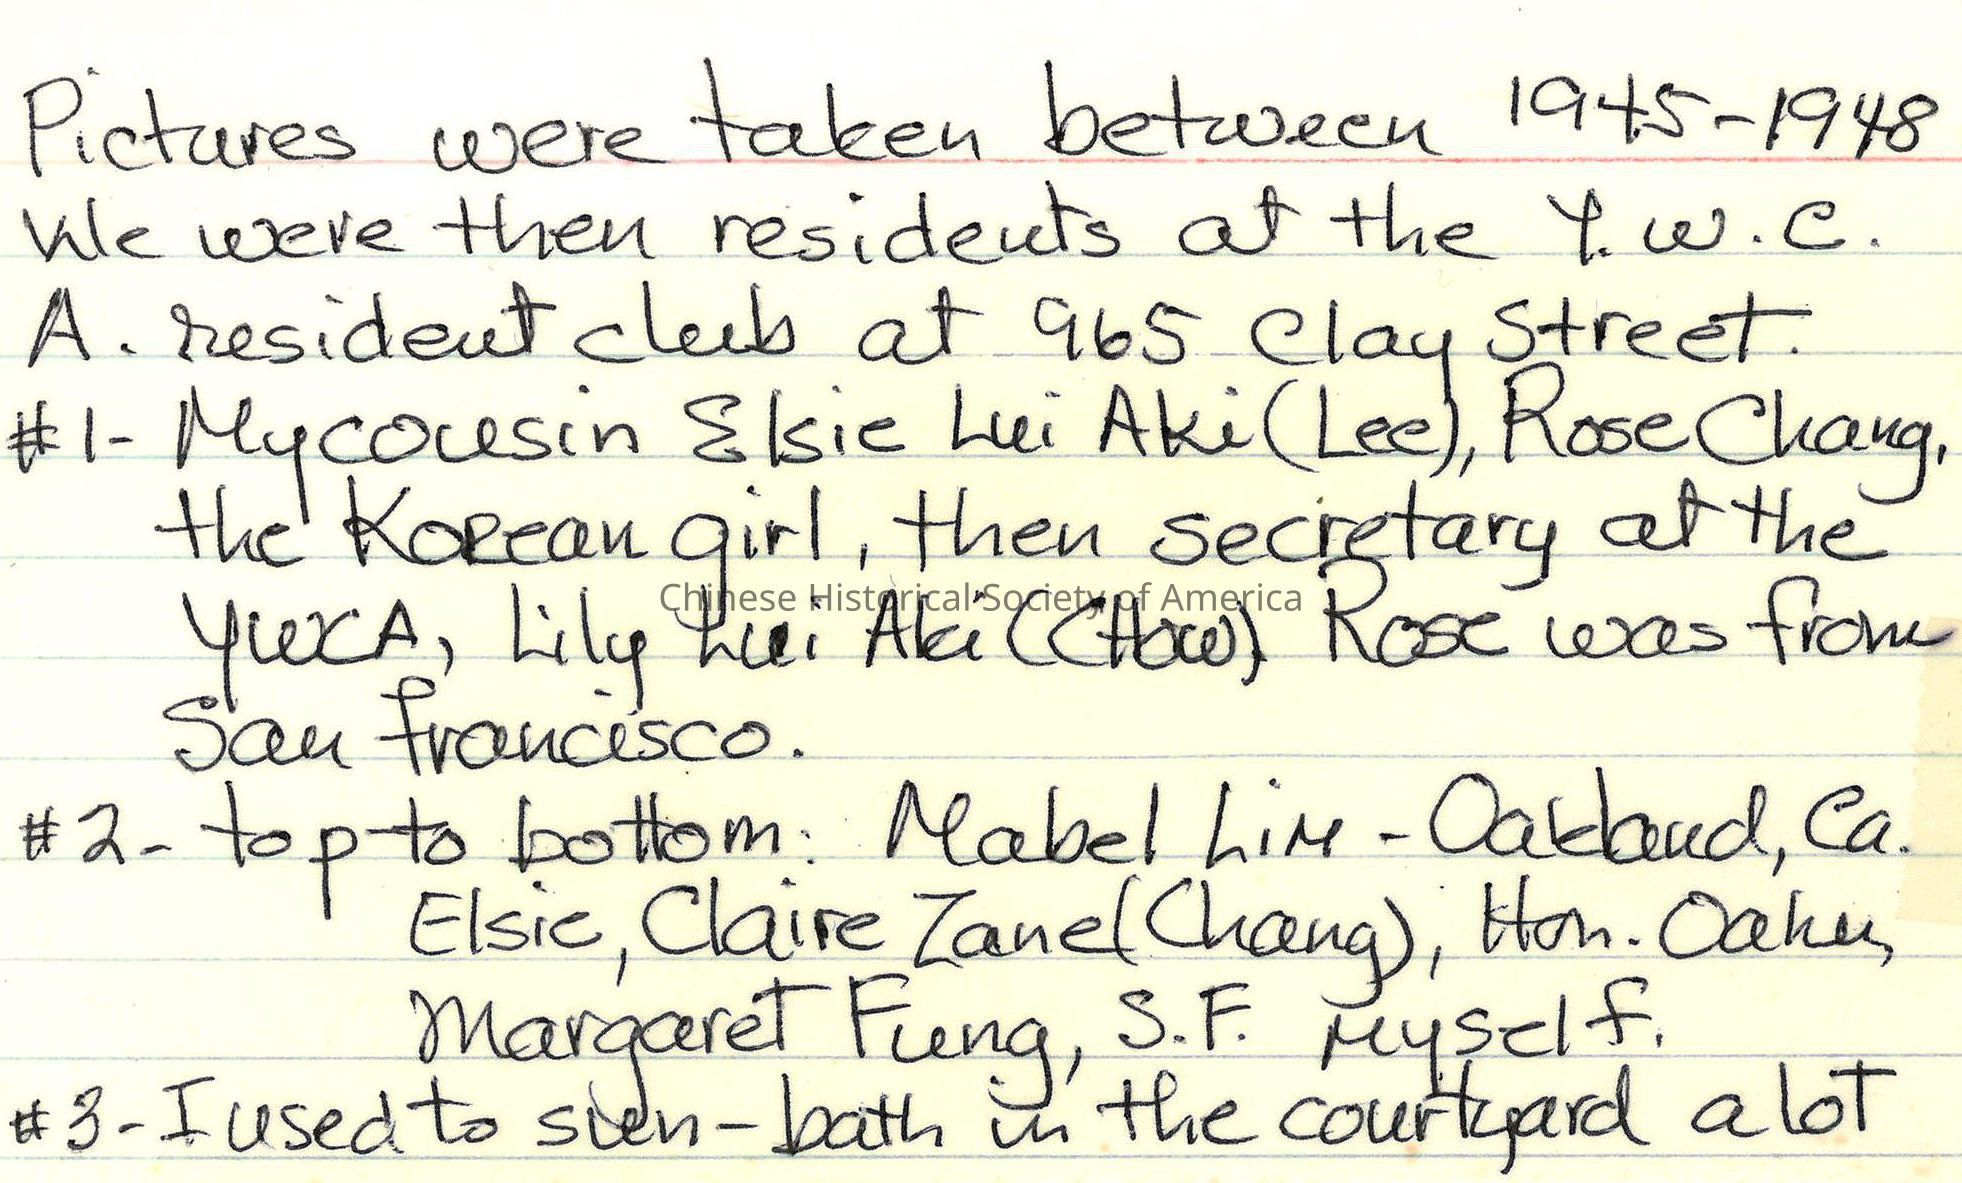 Pictures were taken between 1945-1948
We were then residents at the Y.W.C.
A. resident club at 965 Clay Street.
#1- My cousin Elsie Lui Aki (Lee), Rose Chang,
the Korean girl, then secretary at the
Chinese Historical Society of America
YWCA, Lily Lui Aki (Chow) Rose was from
San Francisco.
#2- top to bottom: Mabel Lim - Oakland, Ca.
Elsie, Claire Zane (Chang), Hon. Oahu,
Margaret Fung, S.F. Myself.
#3- I used to sun-bath in the courtyard a lot